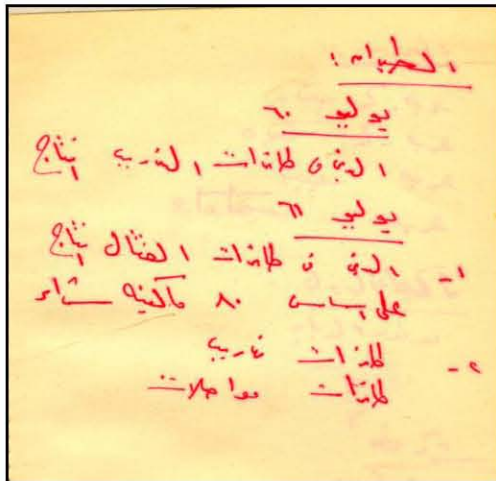 الطيران :
يوليو ٦٠
البدء في طائرات التدريب إنتاج
يوليو ٦١
١- البدء في طائرات القتال إنتاج
على أساس ٨٠ ماكينه شراء
٢- طائرات تدريب
طائرات مواصلات